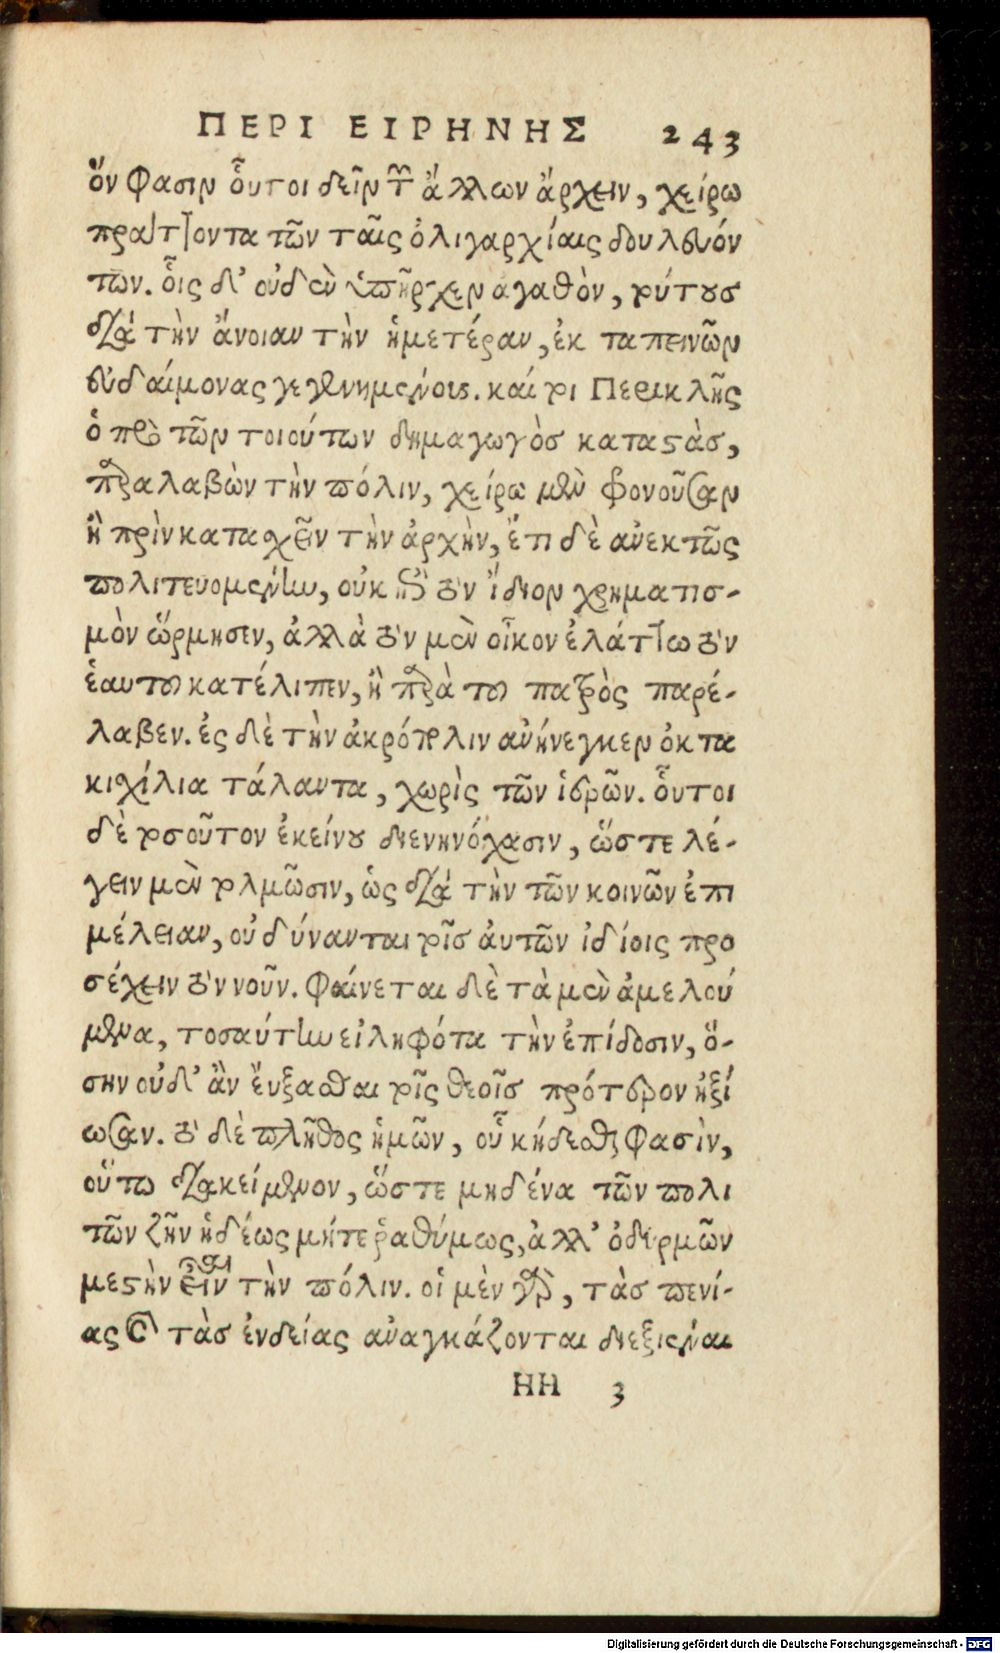 ΠΕΡΙ ΕΙΡΗΝΗΣ 243
ὅν φασιν οὗτοι δεῖν τῶν ἄλλων ἄρχειν, χείρω
πράττοντα τῶν ταῖς ὀλιγαρχίαις δουλευόν
των. οἷς δ' οὐδὲν ὑπῆρχεν ἀγαθὸν, τούτους
διὰ τὴν ἄνοιαν τὴν ἡμετέραν, ἐκ ταπεινῶν
εὐδαίμονας γεγενημένους. καί τοι Περικλῆς
ὁ πρὸ τῶν τοιούτων δημαγωγὸς καταστὰς,
παραλαβὼν τὴν πόλιν, χείρω μὲν φρονοῦσαν
ἢ πρὶν κατασχεῖν τὴν ἀρχὴν, ἔτι δὲ ἀνεκτῶς
πολιτευομένην, οὐκ ἐπὶ τὸν ἴδιον χρηματισ-
μὸν ὥρμησεν, ἀλλὰ τὸν μὲν οἶκον ἐλάττω τὸν
ἑαυτοῦ κατέλιπεν, ἢ παρὰ τοῦ πατρὸς παρέ-
λαβεν. ἐς δὲ τὴν ἀκρόπολιν ἀνήνεγκεν ὀκτα
κιχίλια τάλαντα, χωρὶς τῶν ἱερῶν. οὗτοι
δὲ τοσοῦτον ἐκείνου διενηνόχασιν, ὥστε λέ-
γειν μὲν τολμῶσιν, ὡς διὰ τὴν τῶν κοινῶν ἐπι
μέλειαν, οὐ δύνανται τοῖς αὐτῶν ἰδίοις προ
σέχειν τὸν νοῦν. φαίνεται δὲ τὰ μὲν ἀμελού
μενα, τοσαύτην εἰληφότα τὴν ἐπίδοσιν, ὅ-
σην οὐδ' ἂν εὔξασθαι τοῖς θεοῖς πρότερον ἠξί
ωσαν. τὸ δὲ πλῆθος ἡμῶν, οὗ κήδεσθαι φασὶν,
οὕτω διακείμενον, ὥστε μηδένα τῶν πολι
τῶν ζῆν ἡδέως μήτε ῥαθύμως, ἀλλ' ὀδυρμῶν
μεστὴν εἶναι τὴν πόλιν. οἱ μὲν γὰρ, τὰς πενί-
ας καὶ τὰς ἐνδείας ἀναγκάζονται διεξιέναι
HH 3
Digitalisierung gefördert durch die Deutsche Forschungsgemeinschaft - DFG